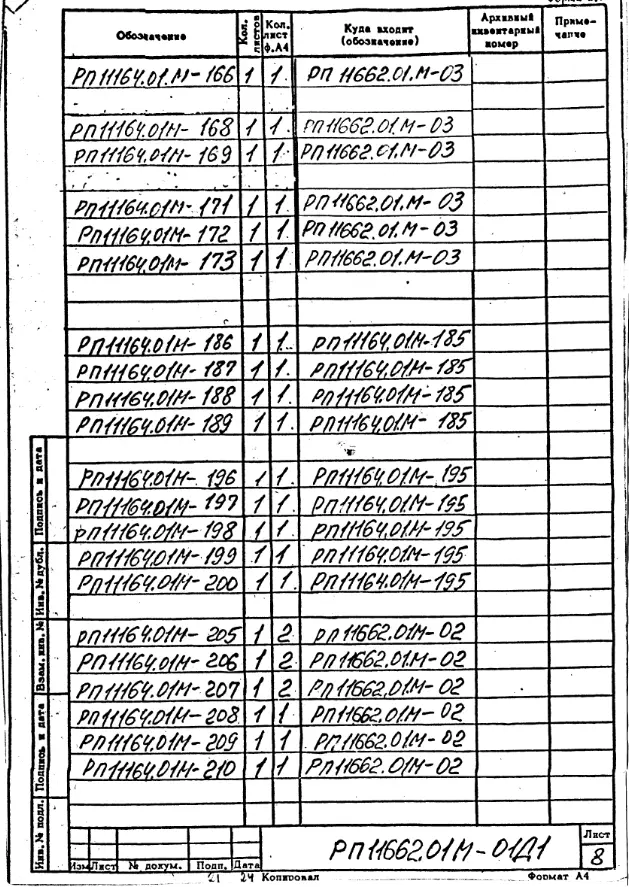 Обозначение Кол. листов Кол. лист ф.А4 Куда входит (обозначение) Архивный инвентарный номер Приме-чание
РП11164.01.М-166 1 1 РП 11662.01.М-03
РП11164.01М-168 1 1 РП11662.01.М-03
РП11164.01М-169 1 1 РП11662.01.М-03
РП11164.01М-171 1 1 РП11662.01.М-03
РП11164.01М-172 1 1 РП11662.01.М-03
РП11164.01М-173 1 1 РП11662.01.М-03
РП11164.01М-186 1 1 РП11164.01М-185
РП11164.01М-187 1 1 РП11164.01М-185
РП11164.01М-188 1 1 РП11164.01М-185
РП11164.01М-189 1 1 РП11164.01М-185
РП11164.01М-196 1 1 РП11164.01М-195
РП11164.01М-197 1 1 РП11164.01М-195
РП11164.01М-198 1 1 РП11164.01М-195
РП11164.01М-199 1 1 РП11164.01М-195
РП11164.01М-200 1 1 РП11164.01М-195
РП11164.01М-205 1 2 РП11662.01М-02
РП11164.01М-206 1 2 РП11662.01.М-02
РП11164.01М-207 1 2 РП11662.01.М-02
РП11164.01М-208 1 1 РП11662.01.М-02
РП11164.01М-209 1 1 РП11662.01М-02
РП11164.01М-210 1 1 РП11662.01М-02
Инв. № подл. Подпись и дата Взам. инв. № Инв. № дубл. Подпись и дата
Изм Лист № докум. Подп. Дата
РП11662.01М-01Д1
Лист
8
21 24 Копировал Формат А4